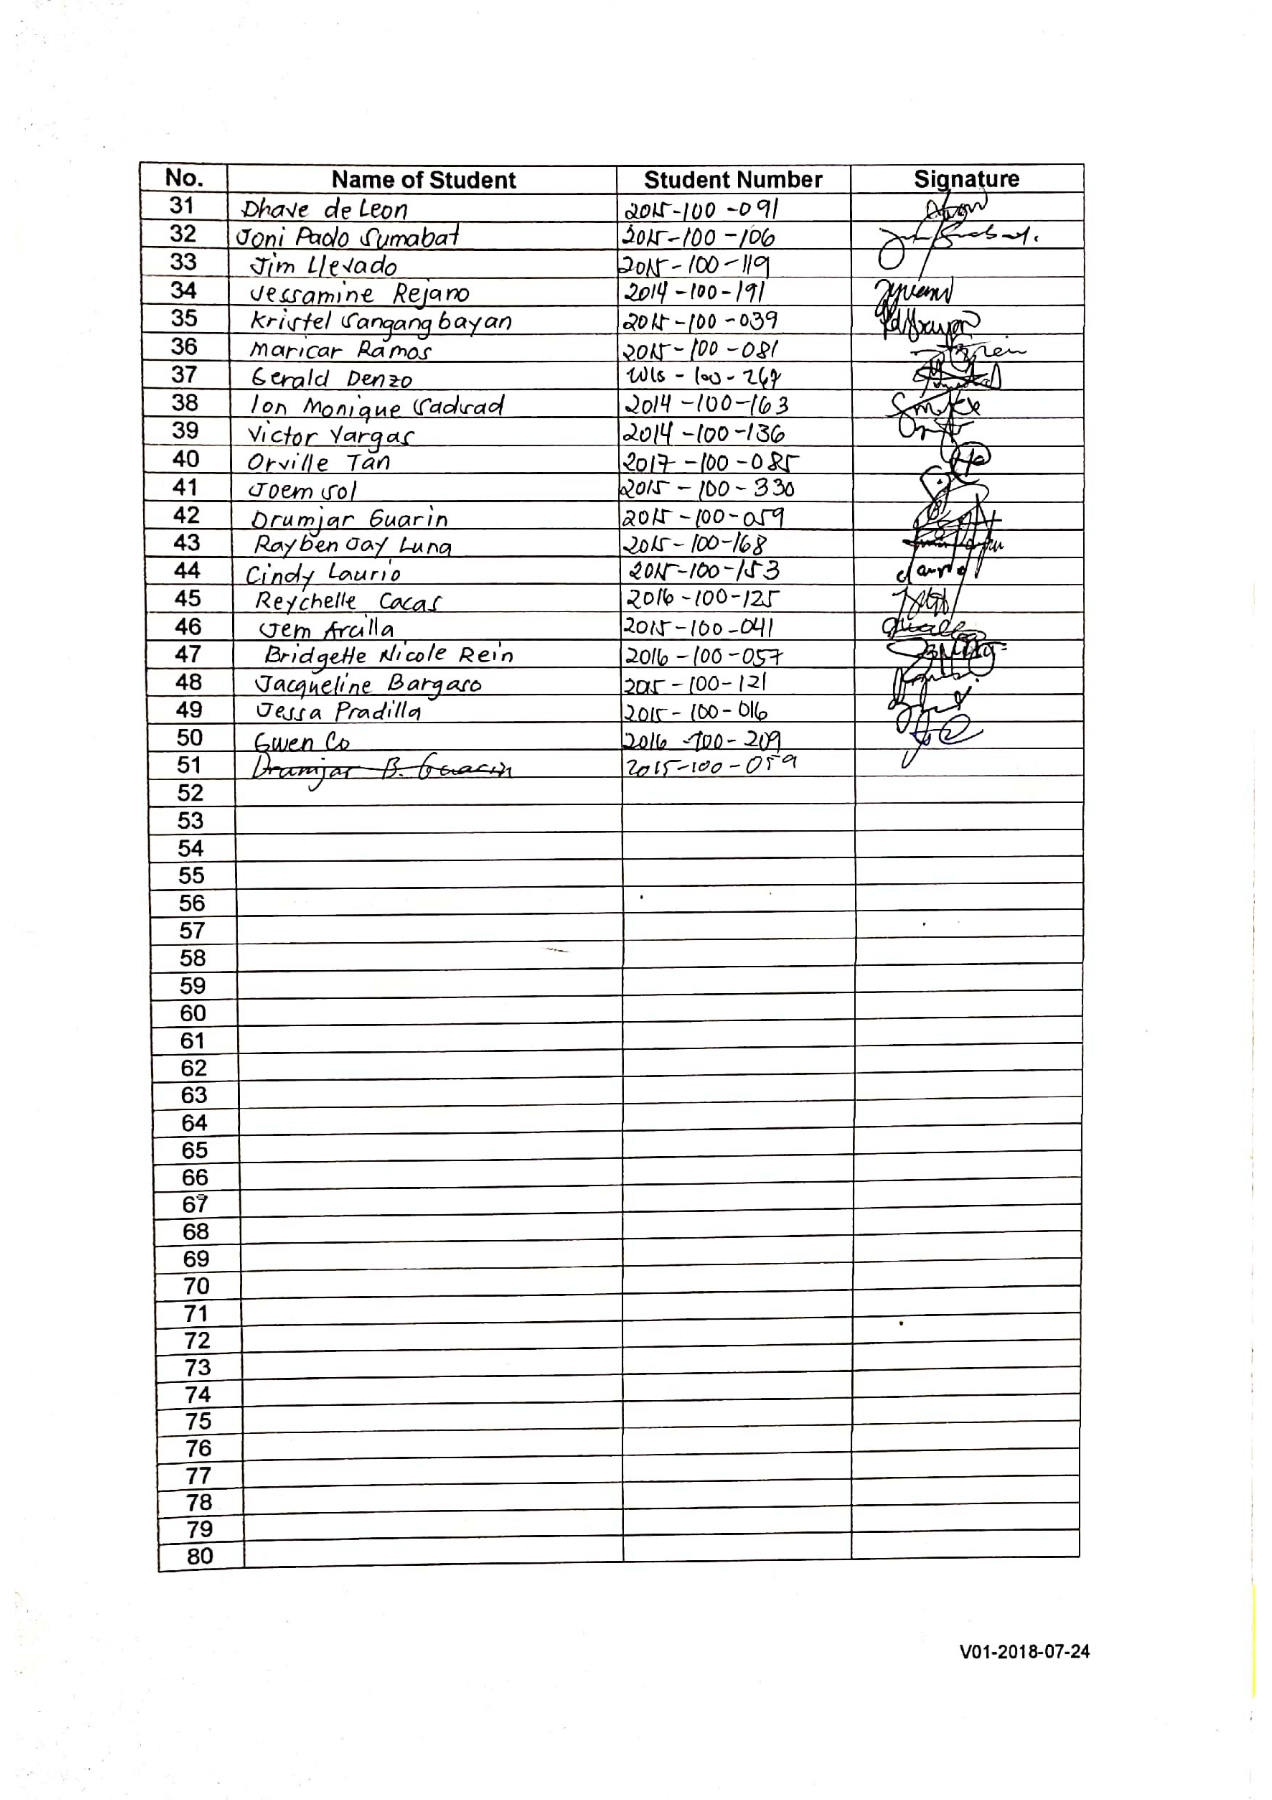 No. Name of Student Student Number Signature
31 Dhave de Leon 2015-100-091
32 Joni Paolo Sumabat 2015-100-106
33 Jim Llevado 2015-100-119
34 Jessamine Rejano 2014-100-191
35 Kristel Sangangbayan 2015-100-039
36 Maricar Ramos 2015-100-081
37 Gerald Denzo
38 Ion Monique Sadsad 2014-100-163
39 Victor Vargas 2014-100-136
40 Orville Tan 2017-100-085
41 Joem Sol 2015-100-330
42 Drumjar Guarin 2015-100-059
43 Rayben Jay Luna 2015-100-168
44 Cindy Laurio 2015-100-153
45 Reychelle Cacas 2016-100-125
46 Jem Arcilla 2015-100-041
47 Bridgette Nicole Rein 2016-100-057
48 Jacqueline Bargaso 2015-100-121
49 Jessa Pradilla 2015-100-016
50 Gwen Co 2016-100-209
51 Drumjar B. Guarin 2015-100-059
52
53
54
55
56
57
58
59
60
61
62
63
64
65
66
67
68
69
70
71
72
73
74
75
76
77
78
79
80
V01-2018-07-24